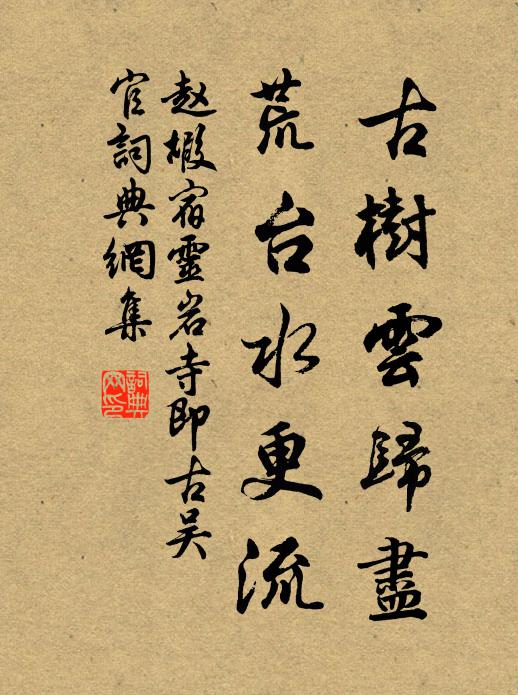 古樹雲歸盡
荒台水更流
赵嘏宿靈岩寺即古吴
官詞典網集
詞典網印